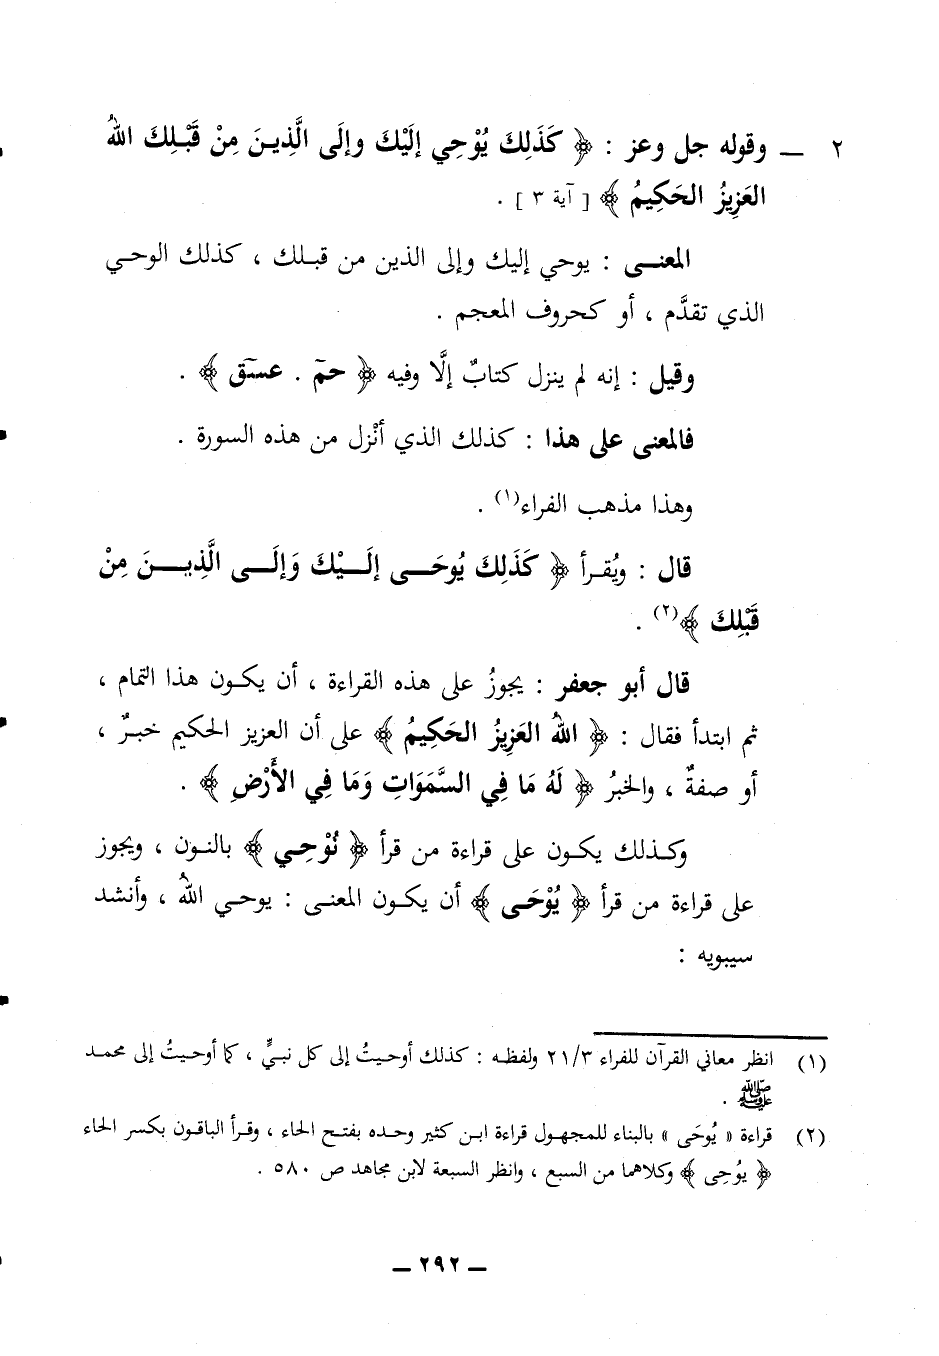 ٢ ــ وقوله جل وعز : ﴿ كَذَلِكَ يُوْحِي إِلَيْكَ وإِلَى الَّذِينَ مِنْ قَبْلِكَ اللهُ
العَزِيزُ الحَكِيمُ ﴾ [ آية ٣ ] .
المعنــى : يوحي إليك وإلى الذين من قبلك ، كذلك الوحي
الذي تقدَّم ، أو كحروف المعجم .
وقيل : إنه لم ينزل كتابٌ إلَّا وفيه ﴿ حمٓ . عسٓقٓ ﴾ .
فالمعنى على هذا : كذلك الذي أنْزل من هذه السورة .
وهذا مذهب الفراء(١) .
قال : ويُقرأ ﴿ كَذَلِكَ يُوحَــى إلَــيْكَ وَإلَــى الَّذِيــنَ مِنْ
قَبْلِكَ ﴾(٢) .
قال أبو جعفر : يجوزُ على هذه القراءة ، أن يكون هذا التمام ،
ثم ابتدأ فقال : ﴿ اللهُ العَزِيزُ الحَكِيمُ ﴾ على أن العزيز الحكيم خبرٌ ،
أو صفةٌ ، والخبرُ ﴿ لَهُ مَا فِي السَّمَوَاتِ وَمَا فِي الأَرْضِ ﴾ .
وكذلك يكون على قراءة من قرأ ﴿ نُوْحِـي ﴾ بالنون ، ويجوز
على قراءة من قرأ ﴿ يُوْحَـى ﴾ أن يكون المعنى : يوحي اللهُ ، وأنشد
سيبويه :
(١) انظر معاني القرآن للفراء ٢١/٣ ولفظه : كذلك أوحيتُ إلى كل نبيٍّ ، كما أوحيتُ إلى محمد
ﷺ .
(٢) قراءة « يُوحَى » بالبناء للمجهول قراءة ابن كثير وحده بفتح الحاء ، وقرأ الباقون بكسر الحاء
﴿ يوُحِى ﴾ وكلاهما من السبع ، وانظر السبعة لابن مجاهد ص ٥٨٠ .
ــ ٢٩٢ ــ